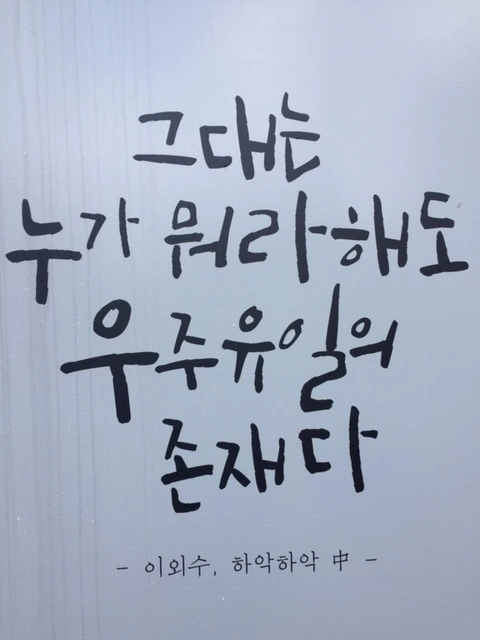 그대는
누가 뭐라해도
우주유일의
존재다
- 이외수, 하악하악 中 -